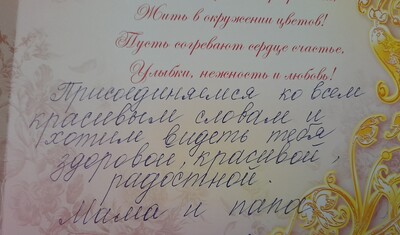 Жить в окружении цветов!
Пусть согревают сердце счастье,
Улыбки, нежность и любовь!
Присоединяемся ко всем
красивым словам и
хотим видеть тебя
здоровой, красивой,
радостной.
Мама и папа